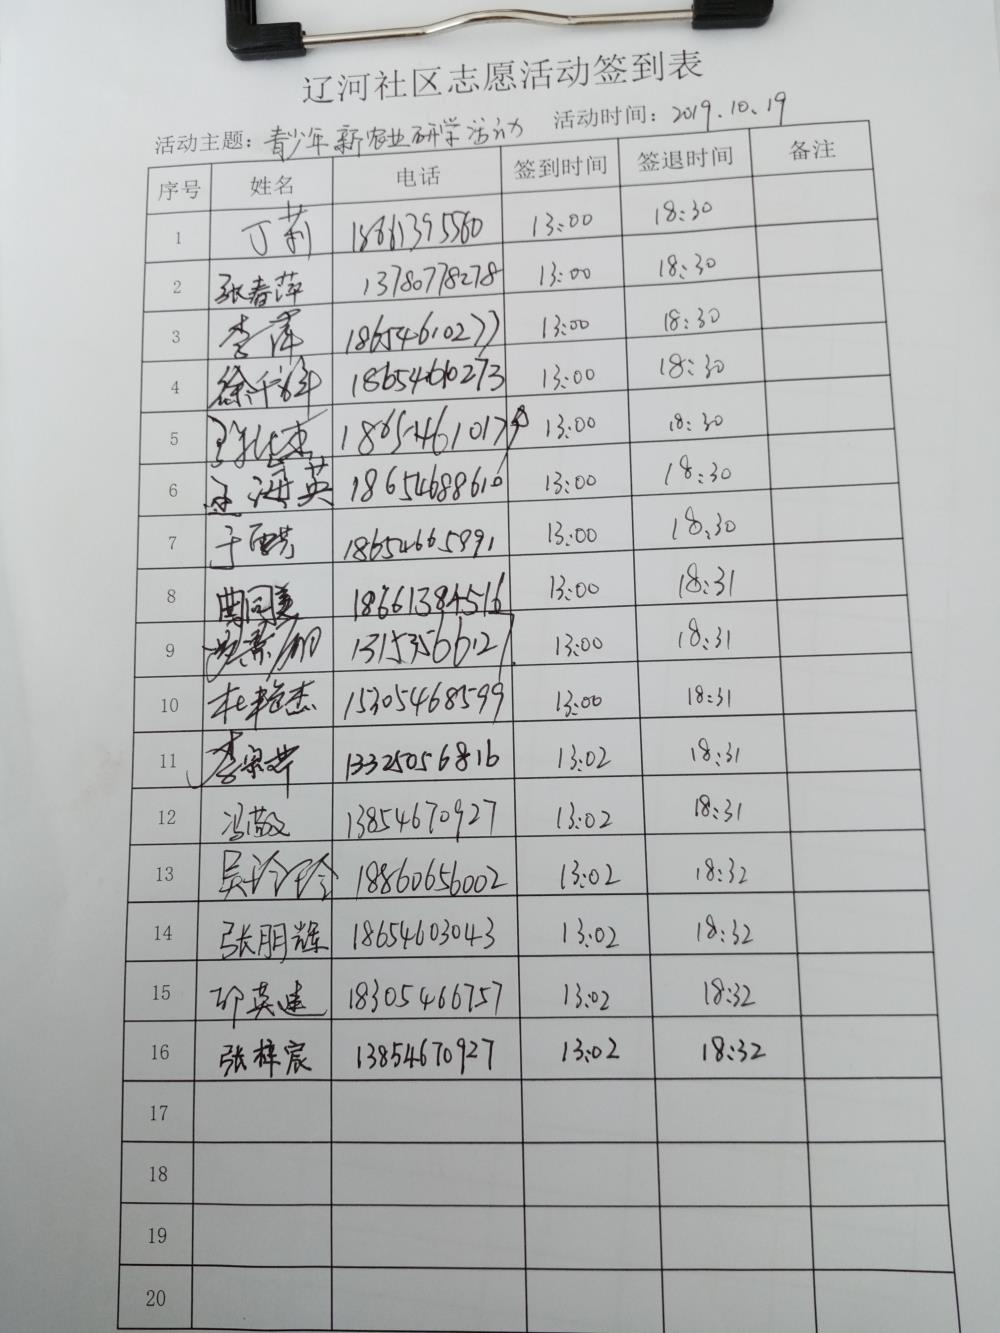 辽河社区志愿活动签到表
活动主题：青少年新农业研学活动 活动时间：2019.10.19
序号 姓名 电话 签到时间 签退时间 备注
1 丁莉 18661395560 13:00 18:30
2 张春萍 13780778278 13:00 18:30
3 李萍 18654610277 13:00 18:30
4 徐 18654610273 13:00 18:30
5 13:00 18:30
6 海英 18654688610 13:00 18:30
7 于 18654665991 13:00 18:30
8 曲同美 18661384516 13:00 18:31
9 13153566127 13:00 18:31
10 杜艳杰 15305468599 13:00 18:31
11 李 13325056816 13:02 18:31
12 冯敬文 13854670927 13:02 18:31
13 吴玲玲 18860656002 13:02 18:32
14 张朋辉 18654603043 13:02 18:32
15 邱英建 18305466757 13:02 18:32
16 张梓宸 13854670927 13:02 18:32
17
18
19
20